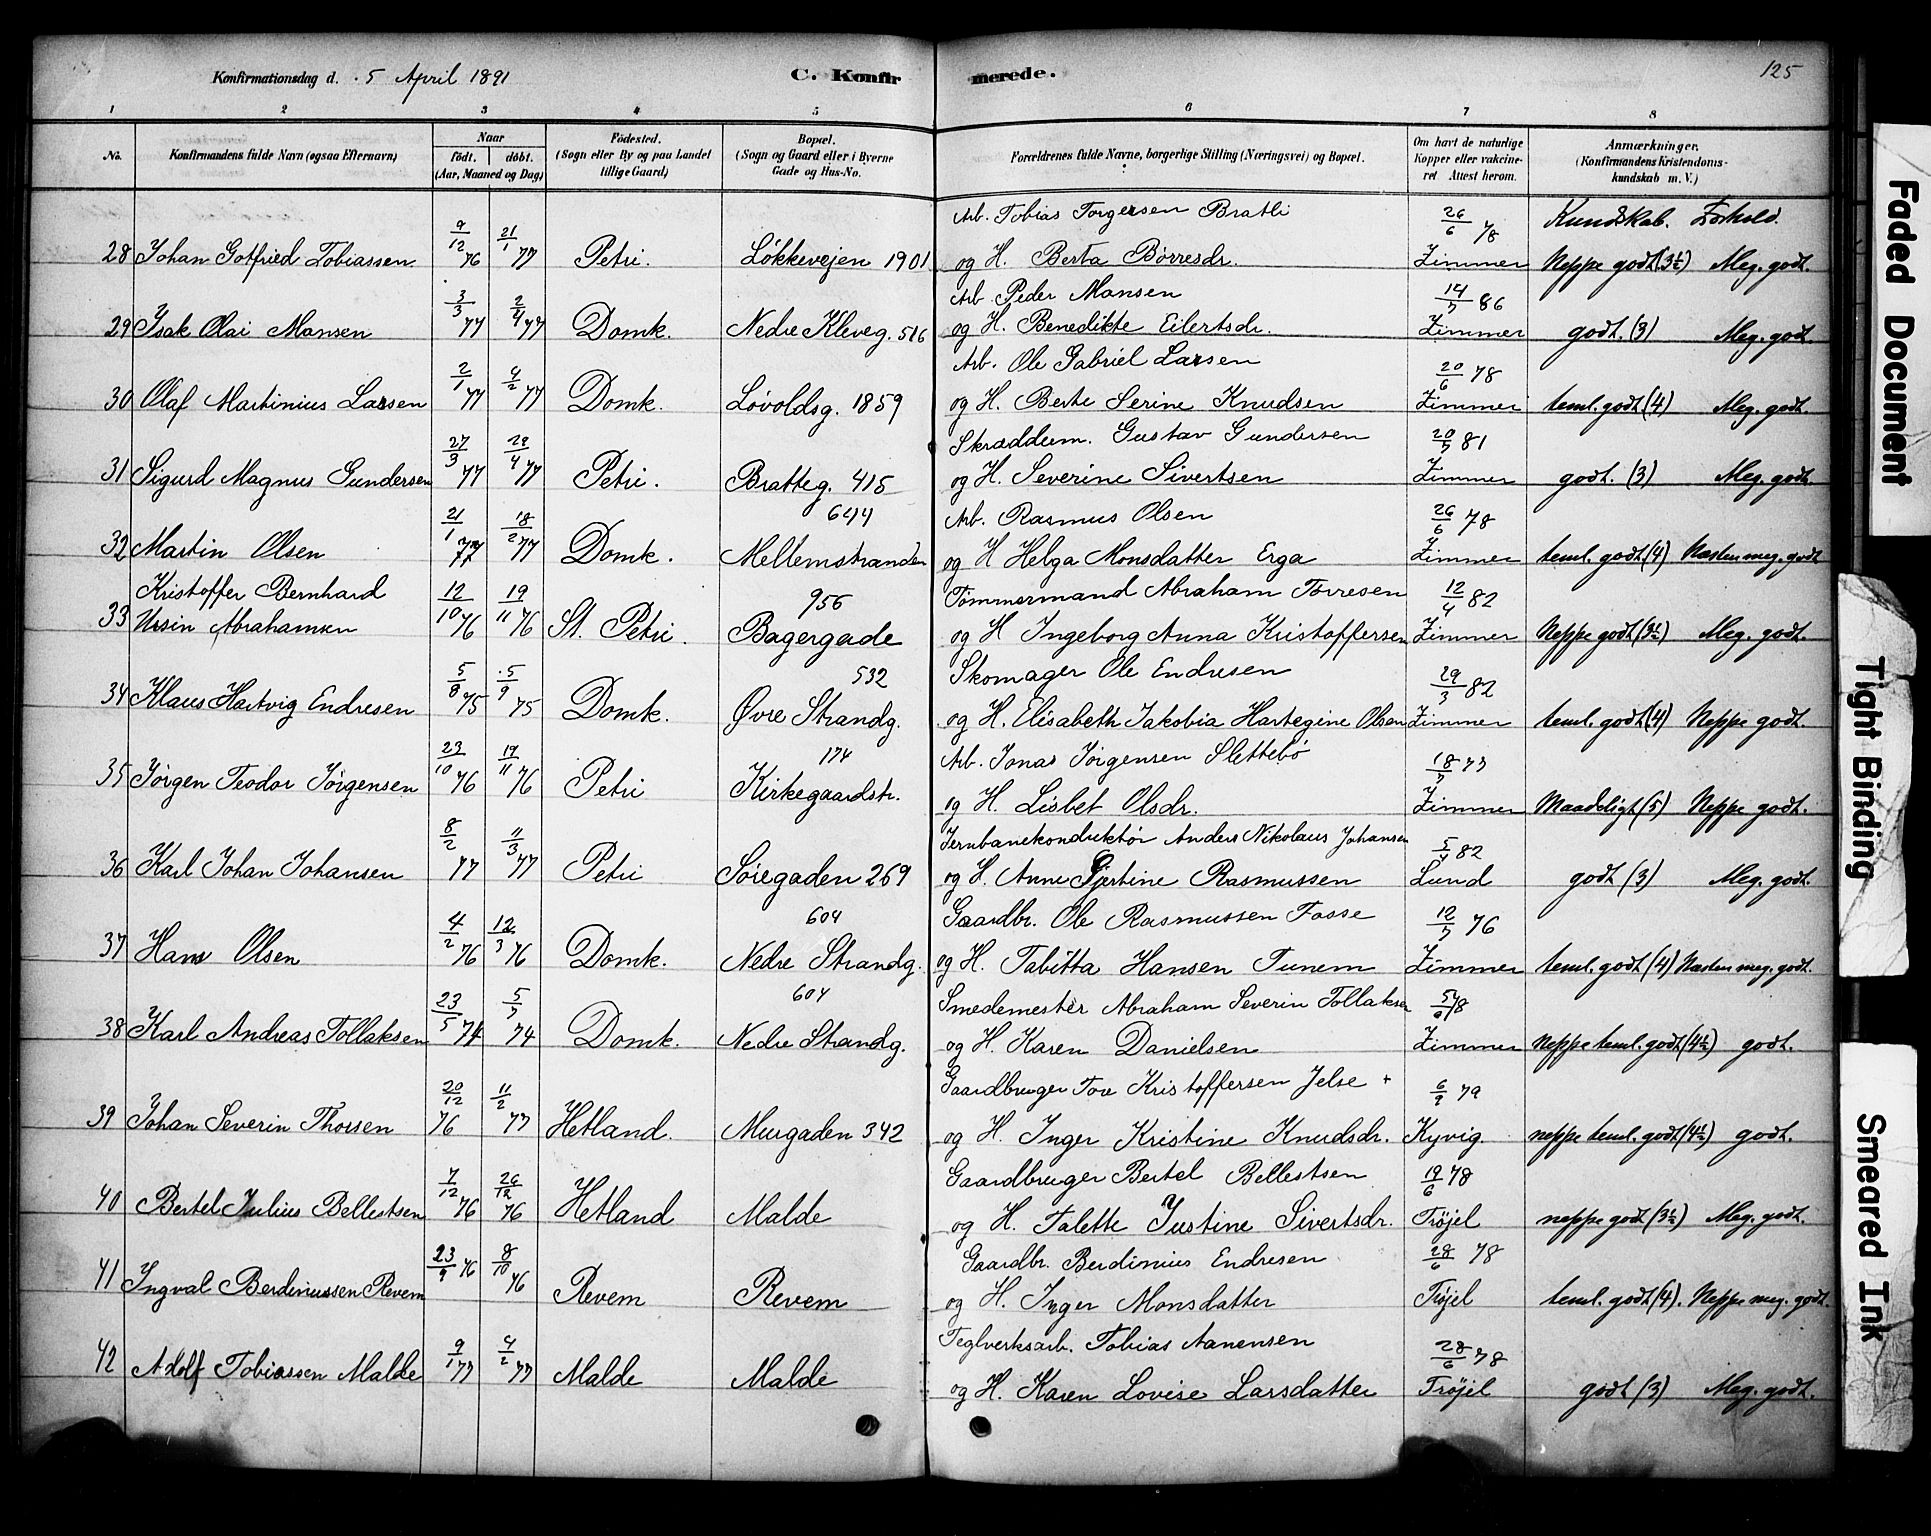 Konfirmationsdag d. 5 April 1891 C. Konfirmerede. 125
1 2 3 4 5 6 7 8
No. Konfirmandens fulde Navn (ogsaa Efternavn) Naar født. døbt. (Aar, Maaned og Dag) Fødested. (Sogn eller By og paa Landet tillige Gaard) Bopæl. (Sogn og Gaard eller i Byerne Gade og Hus-No. Forældrenes fulde Navne, borgerlige Stilling (Næringsvei) og Bopæl. Om havt de naturlige Kopper eller vaccineret Attest herom. Anmærkninger. (Konfirmandens Kristendomskundskab m. V.)
Arb. Tobias Torgersen Bratli 26/6 78 Kundskab. Forhold.
28 Johan Gotfried Tobiassen. 9/12 76 21/1 77 Petri. Løkkevejen 1901 og H. Berta Børresdr. Zimmer Neppe godt (3½) Meg. godt.
Arb. Peder Mansen 14/7 86
29 Isak Olai Mansen 3/3 77 2/4 77 Domk. Nedre Kleveg. 516 og H. Benedikte Eilertsdr. Zimmer godt. (3) Meg. godt.
Arb. Ole Gabriel Larsen 20/6 78
30 Olaf Martinius Larsen 2/1 77 4/2 77 Domk. Løvoldsg. 1859 og H. Berte Serine Knudsen Zimmer teml. godt (4) Meg. godt.
Skræddem. Gustav Gundersen 20/7 81
31 Sigurd Magnus Gundersen 27/3 77 29/4 77 Petri. Bratteg. 415 og H. Severine Sivertsen Zimmer godt. (3) Meg. godt.
644 Arb. Rasmus Olsen 26/6 78
32 Martin Olsen 21/1 77 18/2 77 Domk. Mellemstranden og H Helga Monsdatter Erga Zimmer teml. godt (4) Næsten meg. godt
Kristoffer Bernhard 956 Tømmermand Abraham Torresen 12/4 82
33 Ursin Abrahamsen 12/10 76 19/11 76 St. Petri. Bagergade og H Ingeborg Anna Kristoffersen Zimmer Neppe godt (3½) Meg. godt.
532 Skomager Ole Endresen 29/3 82
34 Klaus Hartvig Endresen 5/8 75 5/9 75 Domk. Øvre Strandg. og H. Elisabeth Jakobia Hartegine Olsen Zimmer teml. godt (4) Neppe godt.
174 Arb. Jonas Jørgensen Slettebø 18/7 77
35 Jørgen Teodor Jørgensen 23/10 76 19/11 76 Petri Kirkegaardstr. og H. Lisbet Olsdr. Zimmer Maadeligt (5) Neppe godt.
Jernbanekonduktør Anders Nikolaus Johansen 5/4 82
36 Karl Johan Johansen 8/2 77 11/3 77 Petri Søregaden 269 og H. Anne Gjertine Rasmussen Lund godt (3) Meg. godt.
604 Gaardbr. Ole Rasmussen Fosse 12/7 76
37 Hans Olsen 4/2 76 12/3 76 Domk. Nedre Strandg. og H. Tabitta Hansen Tunem Zimmer teml. godt (4) Næsten meg. godt.
604 Smedemester Abraham Severin Tollaksen 5/6 78
38 Karl Andreas Tollaksen 23/5 74 5/7 74 Domk. Nedre Strandg. og H. Karen Danielsen Zimmer Neppe teml. godt (4½) godt.
Gaardbruger Tore Kristoffersen Jelse + 6/9 79
39 Johan Severin Thorsen 20/12 76 11/2 77 Hetland. Murgaden 342 og H. Inger Kristine Knudsdr. Kyvig. neppe teml. godt (4½) godt.
Gaardbruger Bertel Bellestsen 19/6 78
40 Bertel Julius Bellestsen 7/12 76 26/12 76 Hetland Malde og H. Talette Justine Sivertsdr. Trøjel neppe godt (3½) Meg. godt.
Gaardbr. Berdinius Endresen 28/6 78
41 Ingval Berdiniussen Revem 23/9 76 8/10 76 Revem Revem og H. Inger Monsdatter Trøjel teml. godt (4). Neppe meg. godt.
Teglverksarb. Tobias Aanensen 28/6 78
42 Adolf Tobiassen Malde 9/1 77 4/2 77 Malde Malde og H. Karen Lovise Larsdatter Trøjel godt (3) Meg. godt.
Faded Document
Tight Binding
Smeared Ink